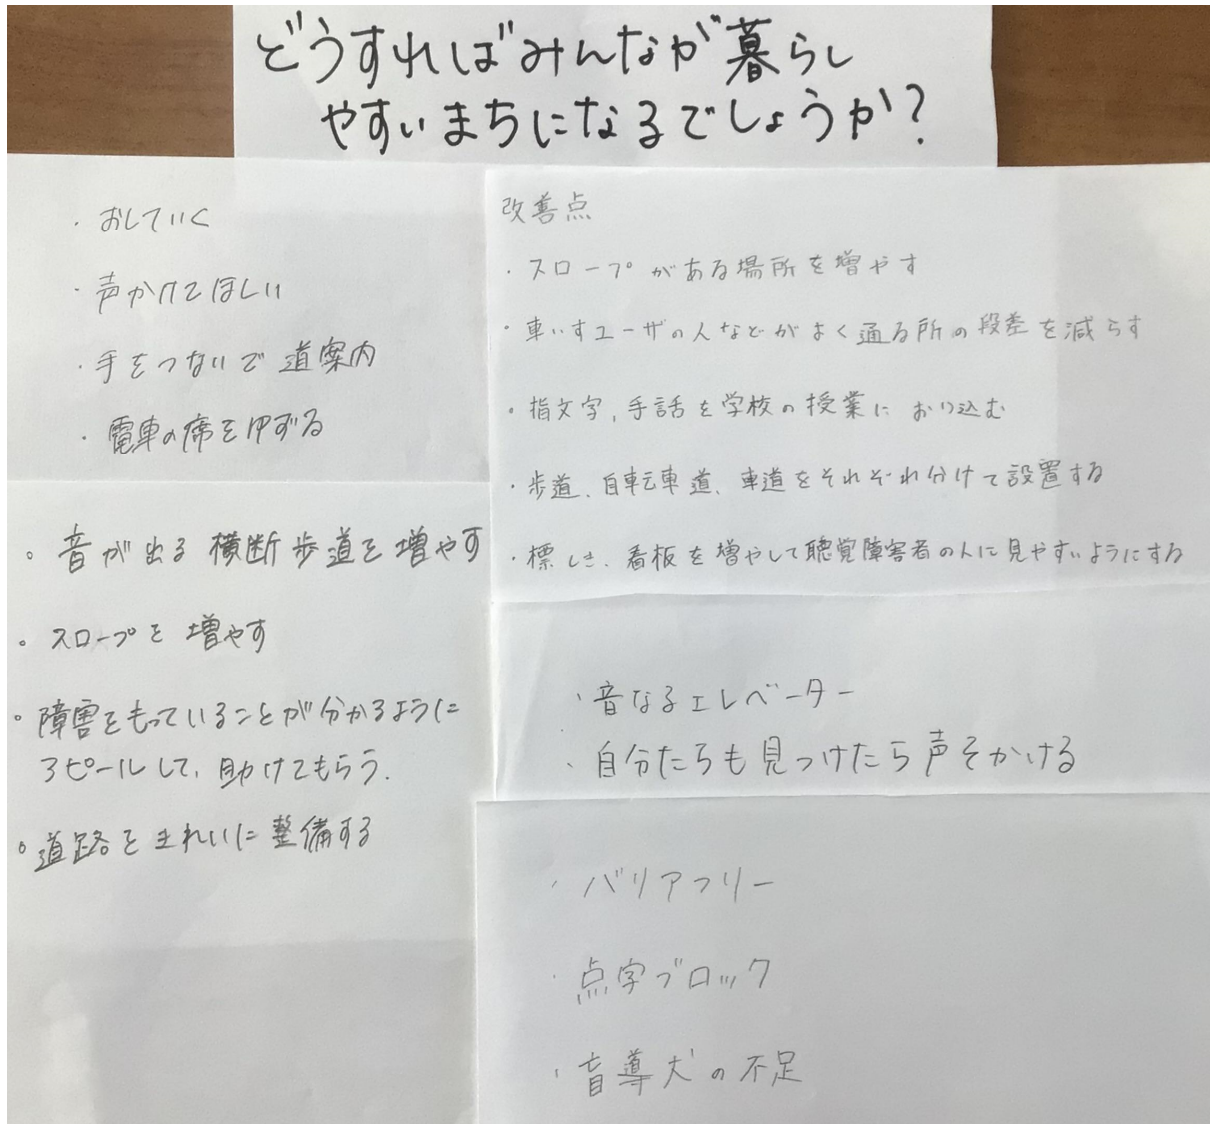 どうすればみんなが暮らし
やすいまちになるでしょうか?
・おしていく
・声かけてほしい
・手をつないで道案内
・電車の席をゆずる
。音が出る横断歩道を増やす
。スロープを増やす
。障害をもっていることが分かるように
アピールして、助けてもらう.
。道路をきれいに整備する
改善点
・スロープがある場所を増やす
・車いすユーザの人などがよく通る所の段差を減らす
・指文字,手話を学校の授業におり込む
・歩道、自転車道、車道をそれぞれ分けて設置する
・標しき、看板を増やして聴覚障害者の人に見やすいようにする
・音なるエレベーター
・自分たちも見つけたら声をかける
・バリアフリー
・点字ブロック
・盲導犬の不足